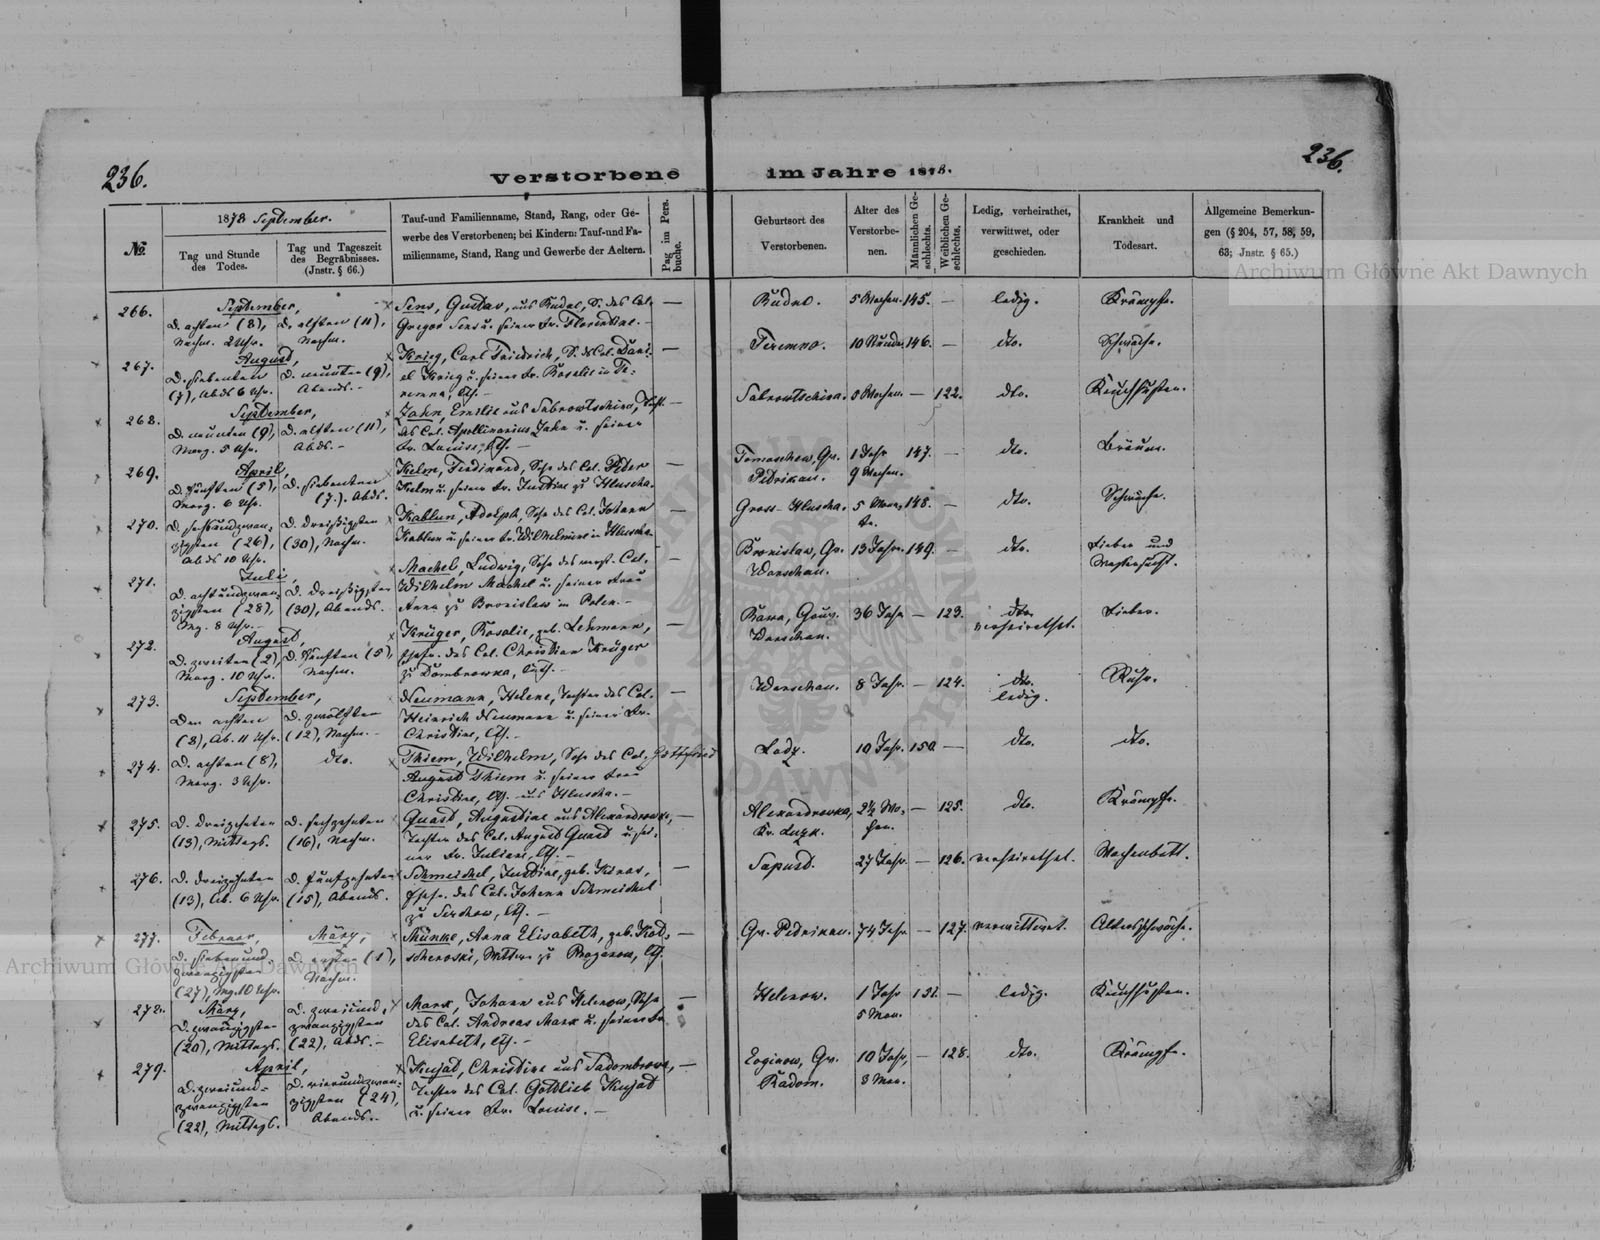 236.
Verstorbene
im Jahre 1878.
236.
№
1878 September.
Tag und Stunde
des Todes.
Tag und Tageszeit
des Begräbnisses.
(Jnstr. § 66.)
Tauf-und Familienname, Stand, Rang, oder Ge-
werbe des Verstorbenen; bei Kindern: Tauf-und Fa-
milienname, Stand, Rang und Gewerbe der Aeltern.
Pag im Pers.
buche.
Geburtsort des
Verstorbenen.
Alter des
Verstorbe-
nen.
Männlichen Ge-
schlechts.
Weiblichen Ge-
schlechts.
Ledig, verheirathet,
verwittwet, oder
geschieden.
Krankheit und
Todesart.
Allgemeine Bemerkun-
gen (§ 204, 57, 58, 59,
63; Jnstr. § 65.)
Archiwum Główne Akt Dawnych
266.
September,
D. achten (8),
Nachm. 2 Uhr.
D. elften (11),
Nachm.
Sens, Gustav, aus Rudne, S. des Col.
Gregor Sens u. seiner Fr. Florentine. —
Rudno.
5 Wochen.
145.
—
ledig.
Krämpfe.
267.
August,
D. siebenten
(7), Abds 6 Uhr.
D. neunten (9),
Abends. —
Krieg, Carl Friedrich, S. des Col. Dani-
el Krieg u. seiner Fr. Rosalie in Te-
remno,
Teremno.
10 Stunde.
146.
—
dto.
Schwäche.
268.
September,
D. neunten (9),
Morg. 5 Uhr.
D. elften (11),
Abds. —
Jahn, Emilie aus
des Col. Apollinarius Jahn u. seiner
Fr. Louise,
8 Wochen.
—
122.
dto.
Keuchhusten.
269.
April,
D. fünften (5),
Morg. 6 Uhr.
D. siebenten
(7). Abds.
Kelm, Ferdinand, Sohn des Col. Peter
Kelm u. seiner Fr. Justine zu Hluscha.
Tomaschow, Gv.
Petrikau.
1 Jahr
9 Wochen.
147.
—
dto.
Bräune.
270.
D. sechsundzwan-
zigsten (26),
Abds 10 Uhr.
D. dreißigsten
(30), Nachm.
Kablun, Adolph, Sohn des Col. Johann
Kablun u. seiner Fr. Wilhelmine in Hluscha.
Gross-Hluscha.
5 Mona-
te.
148.
—
dto.
Schwäche.
271.
Juli,
D. achtundzwan-
zigsten (28),
Mg. 8 Uhr. —
D. dreißigsten
(30), Abends.
Machel, Ludwig, Sohn des verst. Col.
Wilhelm Machel u. seiner Frau
Anna zu Bronislaw in Polen. —
Bronislaw, Gv.
Warschau.
13 Jahr.
149.
—
dto.
Fieber und
Wassersucht.
272.
August,
D. zweiten (2),
Morg. 10 Uhr.
D. fünften (5),
Nachm.
Krüger, Rosalie, geb. Lehmann,
Ehefr. des Col. Christian Krüger
zu Dombrowka,
Rawa, Gouv.
Warschau.
36 Jahr
—
123.
dto.
verheirathet.
Fieber.
273.
September,
Den achten
(8), Ab. 11 Uhr.
D. zwölften
(12), Nachm. —
Neumann, Helene, Tochter des Col.
Heinrich Neumann u. seiner Fr.
Christine,
Warschau.
8 Jahr.
—
124.
dto.
ledig.
Ruhr.
274.
D. achten (8),
Morg. 3 Uhr.
dto.
Thiem, Wilhelm, Sohn des Col. Gottfried
August Thiem u. seiner Frau
Christine, aus Hluscha. —
Lodz.
10 Jahr.
150.
—
dto.
dto.
275.
D. dreizehnten
(13), Mittags.
D. sechzehnten
(16), Nachm.
Quast, Augustine aus Alexandrowka,
Tochter des Col. August Quast u. sei-
ner Fr. Juliane,
Alexandrowka,
Kr. Luzk.
2½ Wo-
chen.
—
125.
dto.
Krämpfe.
276.
D. dreizehnten
(13), Ab. 6 Uhr.
D. fünfzehnten
(15), Abends.
Schmeichel, Justine, geb. Kinas,
Ehefr. des Col. Johann Schmeichel
Sapust.
27 Jahr.
—
126.
verheirathet.
Wochenbett.
277.
Februar,
D. siebenund-
zwanzigsten
(27), Mg. 10 Uhr.
März,
D. ersten (1),
Nachm.
Münke, Anna Elisabeth, geb. Kad-
scheroski, Wittwe zu
Gv. Petrikau.
74 Jahr
—
127.
verwittwet.
Altersschwäche.
Archiwum Główne Akt Dawnych
278.
März,
D. zwanzigsten
(20), Mittags.
D. zweiund-
zwanzigsten
(22), Abds. —
Marx, Johann aus Helenow, Sohn
des Col. Andreas Marx u. seiner Fr.
Elisabeth,
Helenow.
1 Jahr
5 Mon.
151.
—
ledig.
Keuchhusten.
279.
April,
D. zweiund-
zwanzigsten
(22), Mittags.
D. vierundzwan-
zigsten (24),
Abends. —
Kujat, Christine aus Sadombrowa,
Tochter des Col. Gottlieb Kujat
u. seiner Fr. Louise. —
Loginow, Gv.
Radom.
10 Jahr,
3 Mon.
—
128.
dto.
Krämpfe.